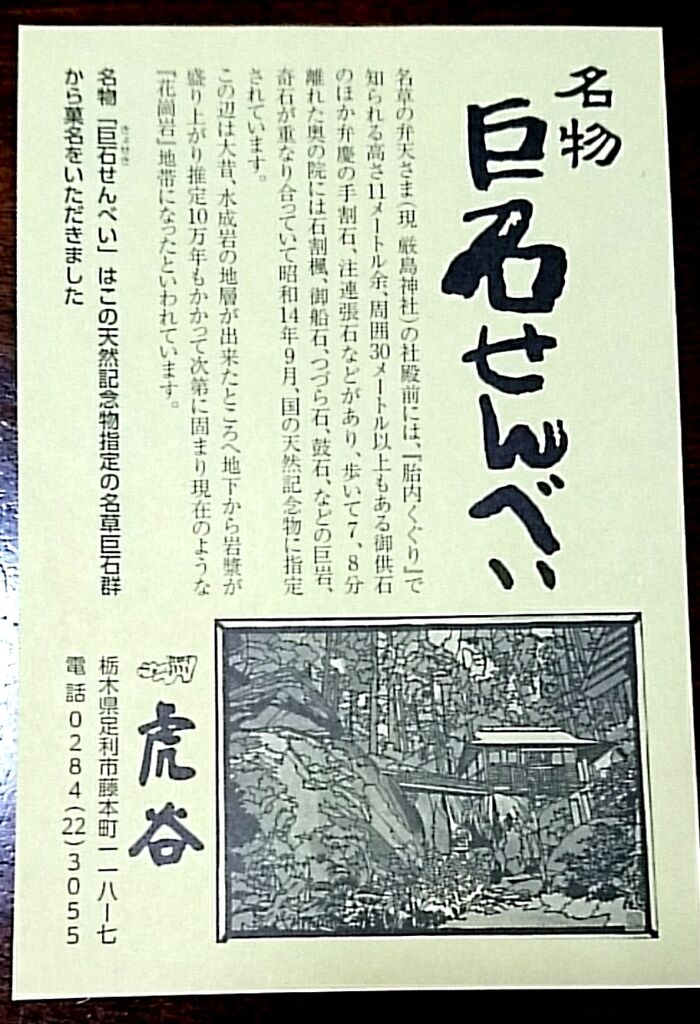 名物
巨石せんべい
名草の弁天さま(現 厳島神社)の社殿前には、『胎内くぐり』で
知られる高さ11メートル余、周囲30メートル以上もある御供石
のほか弁慶の手割石、注連張石などがあり、歩いて7、8分
離れた奥の院には石割楓、御船石、つづら石、鼓石、などの巨岩、
奇石が重なり合っていて昭和14年9月、国の天然記念物に指定
されています。
この辺は大昔、水成岩の地層が出来たところへ地下から岩漿が
盛り上がり推定10万年もかかって次第に固まり現在のような
『花崗岩』地帯になったといわれています。
名物「巨石せんべい」はこの天然記念物指定の名草巨石群
きょせき
から菓名をいただきました
虎谷
栃木県足利市藤本町一一八ー七
電話0284(22)3055